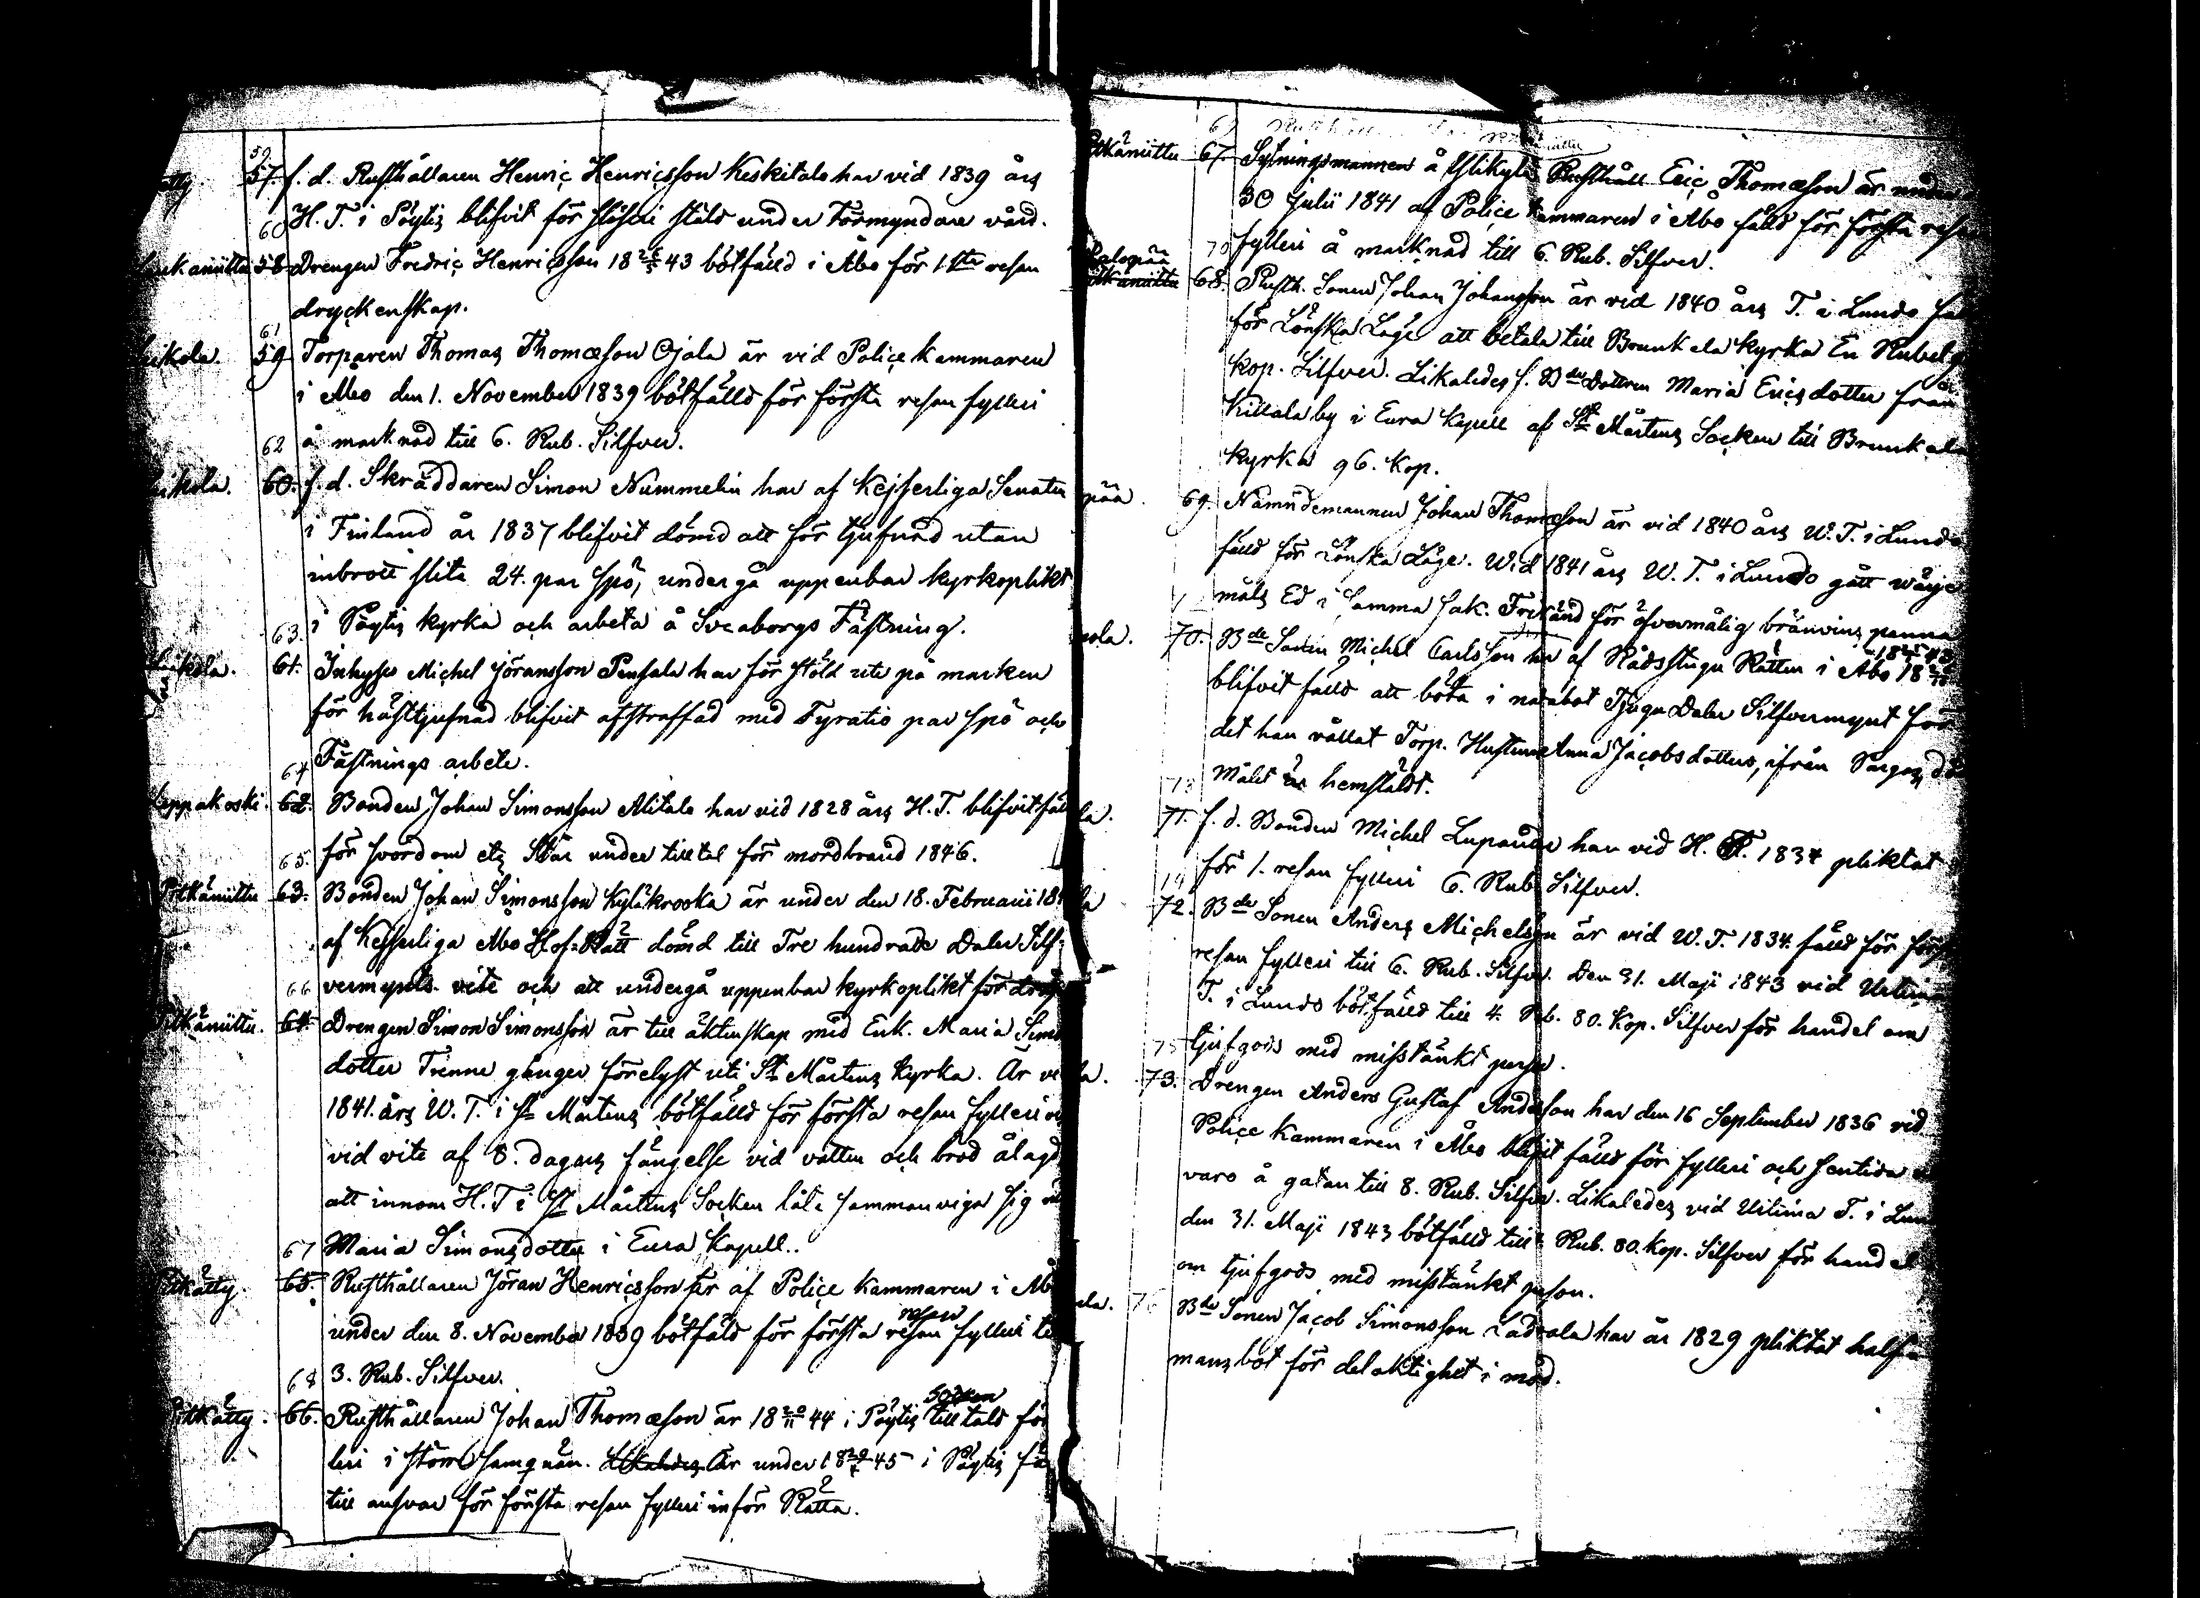 59
57. f. d. Rusthållaren Henric Henricsson Keskitalo har vid 1839 års
60 H. T. i Pöytis blifvit för slöseri stäld under Förmyndare vård.
58 Drengen Fredric Henricsson 18 26/5 43 bötfälld i Åbo för 1sta resan
dryckenskap.
61
59 Torparen Thomas Thomæson Ojala är vid Police Kammaren
i Åbo den 1. November 1839 bötfälld för första resan fylleri
62 å marknad till 6. Rub. Silfver.
60. f. d. Skräddaren Simon Nummelin har af Kejserliga Senaten
i Finland år 1837 blifvit dömd att för tjufnad utan
inbrott slita 24. par spö, undergå uppenbar kyrkoplikt
63. i Pöytis kyrka och arbeta å Sveaborgs Fästning.
61. Inhyses Michel Jöransson Pensala har för stöld ute på marken
för hästtjufnad blifvit afstraffad med Fyratio par spö och
64 Fästnings arbete.
Leppakoski. 62. Bonden Johan Simonsson Alitalo har vid 1828 års H. T. blifvit fäl
65. för svordom etc står under tilltal för mordbrand 1846.
Pitkäniittu 63. Bonden Johan Simonsson Kyläkrooka är under den 18. Februarii 18
af Kejserliga Åbo Hof-Rätt dömd till Tre hundrade Daler Silf-
66 vermynts vite och att undergå uppenbar kyrkoplikt för
Pitkäniittu. 64 Drengen Simon Simonsson är till äktenskap med Enk. Maria Simo
dotter Trenne gånger förelyst uti St Mårtens kyrka. Är vi
1841. års W. T. i St Mårtens bötfälld för första resan fylleri o
vid vite af 8. dagars fängelse vid vatten och bröd ålagd
att innom H. T i St Mårtens Socken låta sammanviga sig
67 Maria Simonsdotter i Eura Kapell..
Pitkätty. 65. Rusthållaren Jöran Henricsson är af Police Kammaren i Åb
resan
under den 8. November 1839 bötfäld för första resan fylleri ti
68 3. Rub. Silfver.
Socken
Pitkätty. 66. Rusthållaren Johan Thomæson är 18 20/11 44 i Pöytis tilltald för
leri i större samqvän. Likaledes Är under 18 45 i Pöytis fä
till ansvar för första resan fylleri inför Rätta.
Pitkäniittu 67. Sytningsmannen å Ylikylä Rusthåll Eric Thomæson är under
30 Julii 1841 af Police Kammaren i Åbo fälld för första resa
70 fylleri å marknad till 6. Rub. Silfver.
68. Rusth. Sonen Johan Johansson är vid 1840 års T. i Lundo fäl
för Lönska Läge att betala till Brunkala kyrka En Rubel 9
kop. Silfver. Likaledes f. Bde Dottren Maria Ericsdotter från
Killala by i Eura Kapell af St Mårtens Socken till Brunkala
kyrka 96. Kop.
69. Nämndemannen Johan Thomæson är vid 1840 års W. T. i Lundo
fälld för Lönska Läge. Wid 1841 års W. T. i Lundo gått wärje-
måls Ed i samma sak. Frikänd för öfvermålig bränvins panna
70. Bde Sonen Michel Carlsson har af Rådstugu Rätten i Åbo 18
blifvit fälld att böta i nararbot Tjugu Daler Silfvermynt för
det han vållat Torp. Hustrun Anna Jacobsdotters, ifrån Pargas, dö
73 Målet är hemstäldt.
71. f. d. Bonden Michel Lupander har vid H. T. 1834 pliktat
för 1. resan fylleri 6. Rub Silfver.
72. Bde Sonen Anders Michelsson är vid W. T. 1834. fälld för förs
resan fylleri till 6. Rub. Silfver. Den 31. Maji 1843 vid Urtima
T. i Lundo bötfälld till 4. Rb. 80. Kop. Silfver för handel om
75 tjufgods med misstänkt person.
73. Drengen Anders Gustaf Andersson har den 16 September 1836 vid
Police Kammaren i Åbo blifvit fälld för fylleri och sentida
varo å gatan till 8. Rub. Silfver. Likaledes vid Urtima T. i Lun
den 31. Maji 1843 bötfälld till Rub. 80. Kop. Silfver för handel
om tjufgods med misstänkt person.
76 Bde Sonen Jacob Simonsson Ladvala har år 1829 pliktat half
mans bot för delaktighet i mord.